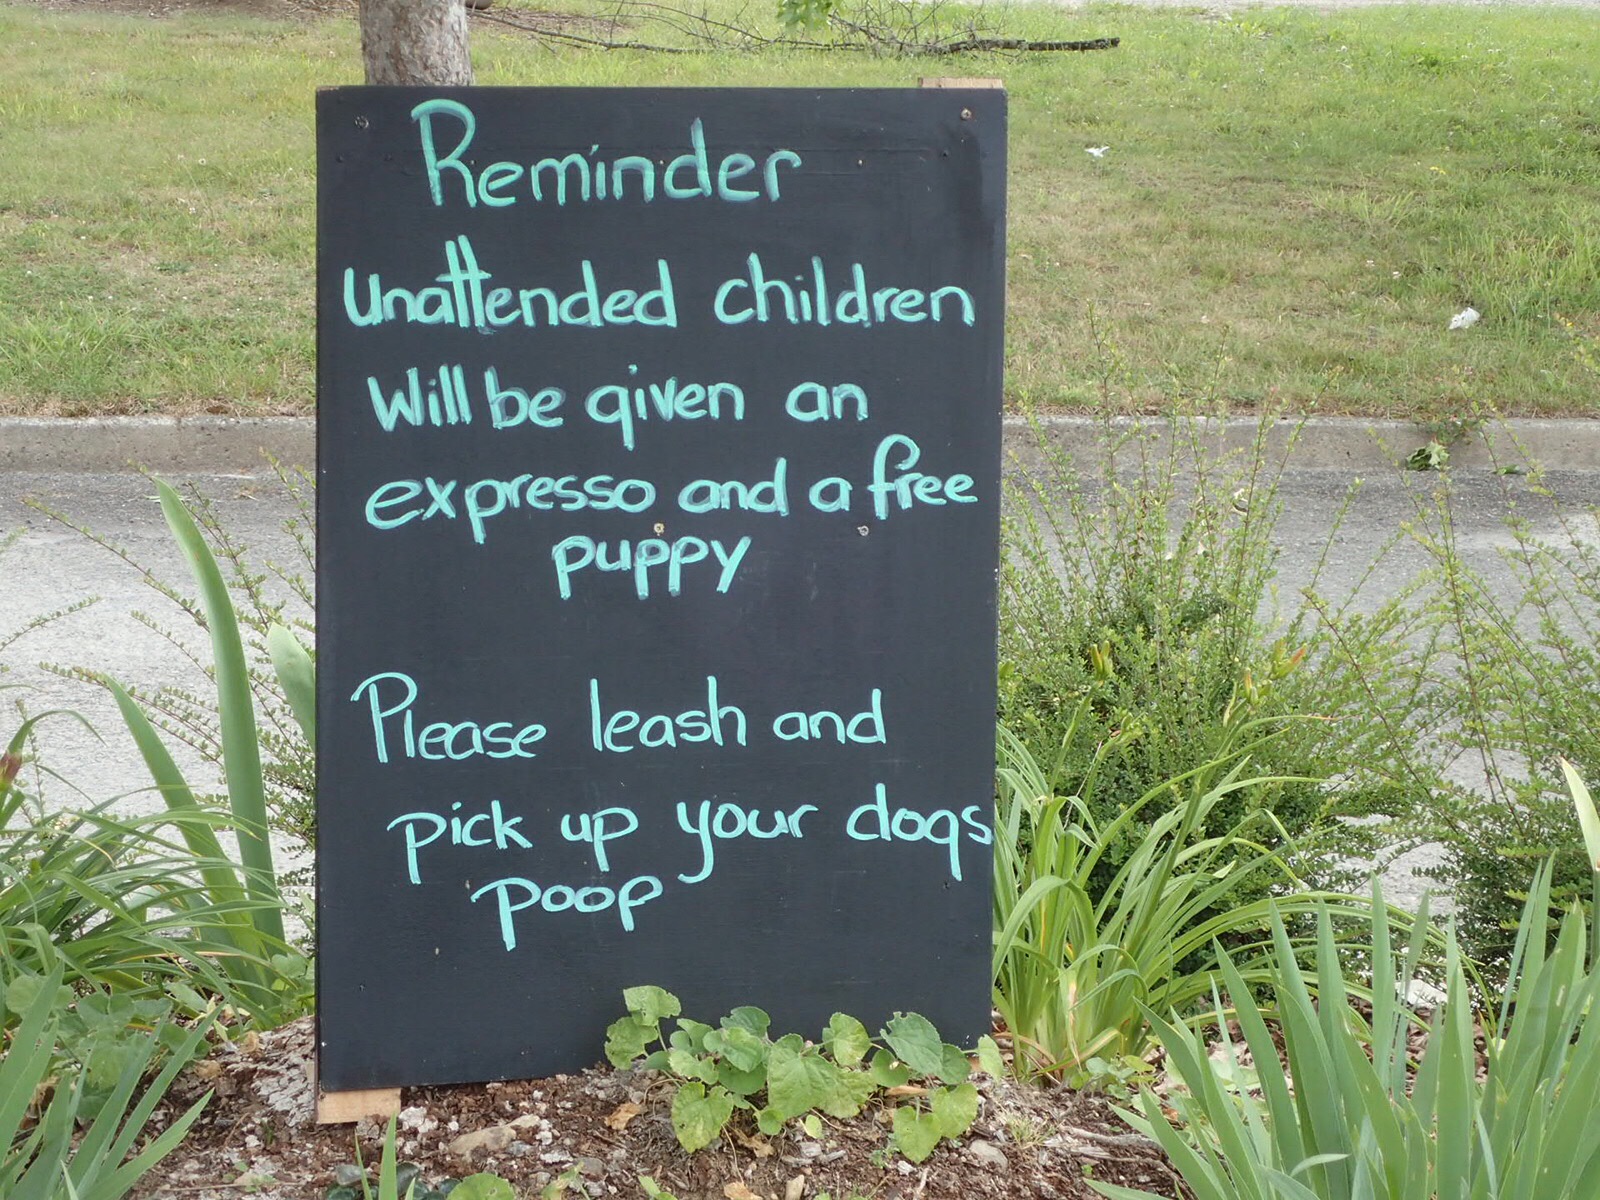 Reminder
unattended children
Will be given an
expresso and a free
puppy
Please leash and
pick up your dogs
poop